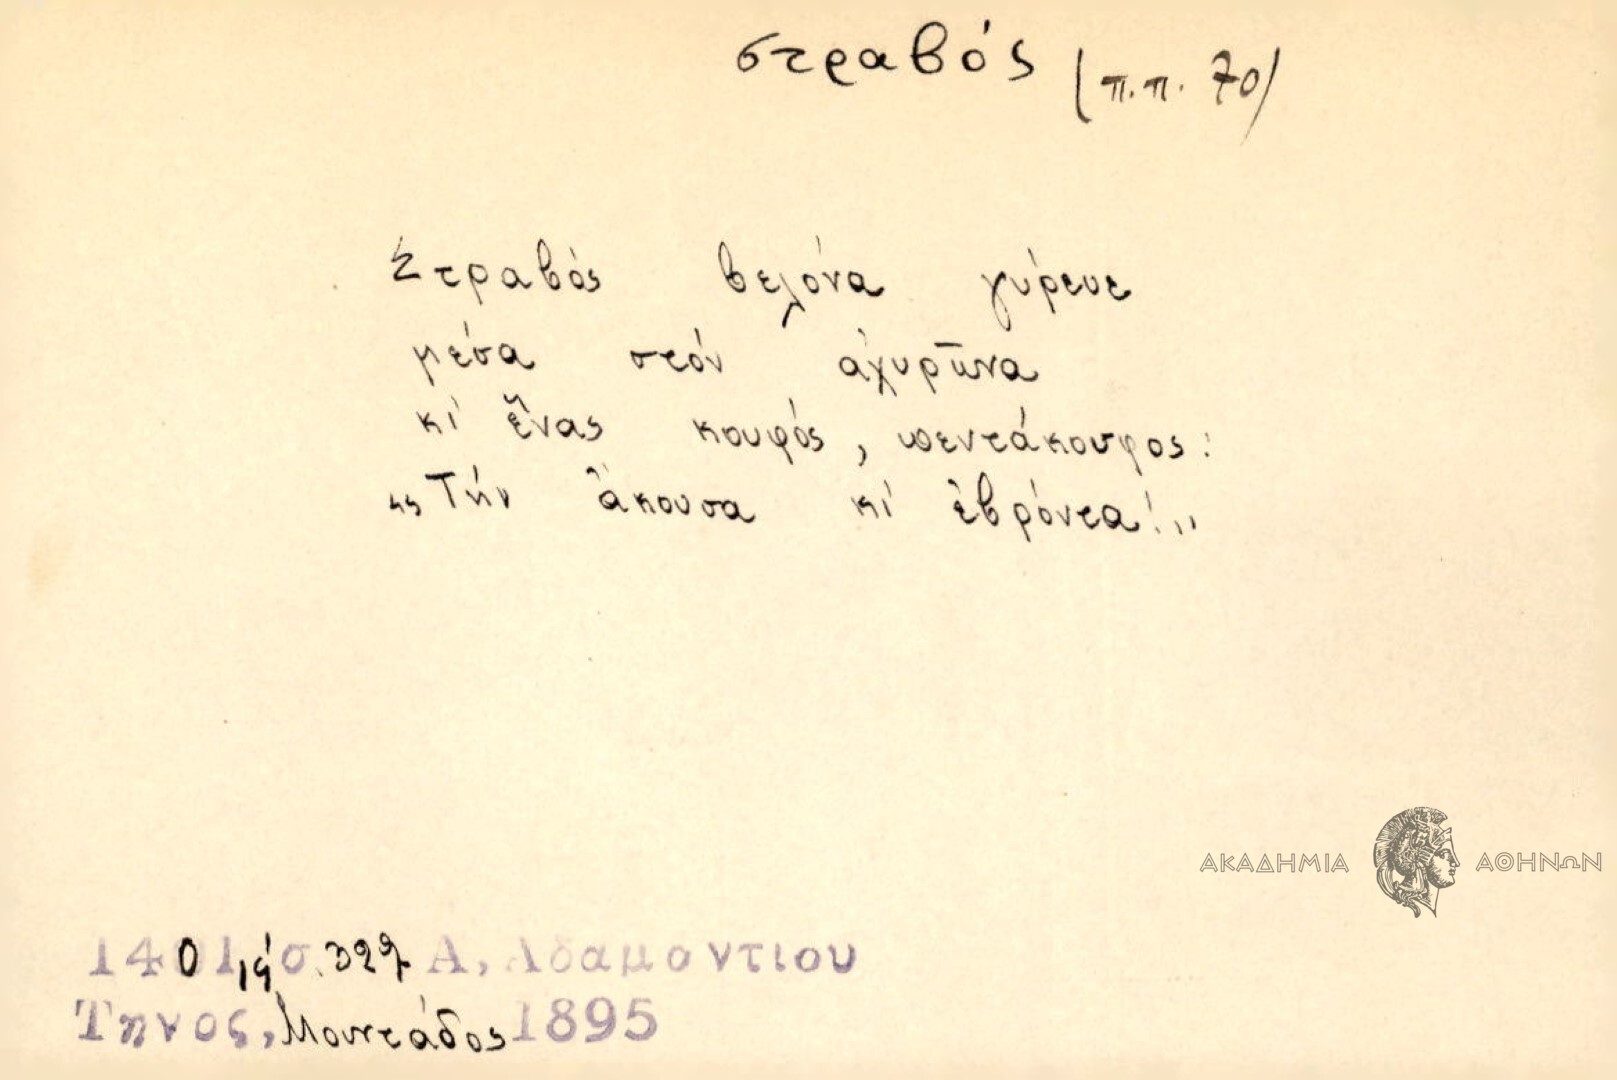 στραβός (π.π. 70)
Στραβός βελόνα γύρευε
μέσα στόν ἀχυρῶνα
κι ἕνας κουφός, πεντάκουφος:
„Τήν ἄκουσα κι ἐβρόντα!"
ΑΚΑΔΗΜΙΑ ΑΘΗΝΩΝ
1401, σ. 327 Α. Αδαμαντίου
Τηνος, Μουντάδος 1895